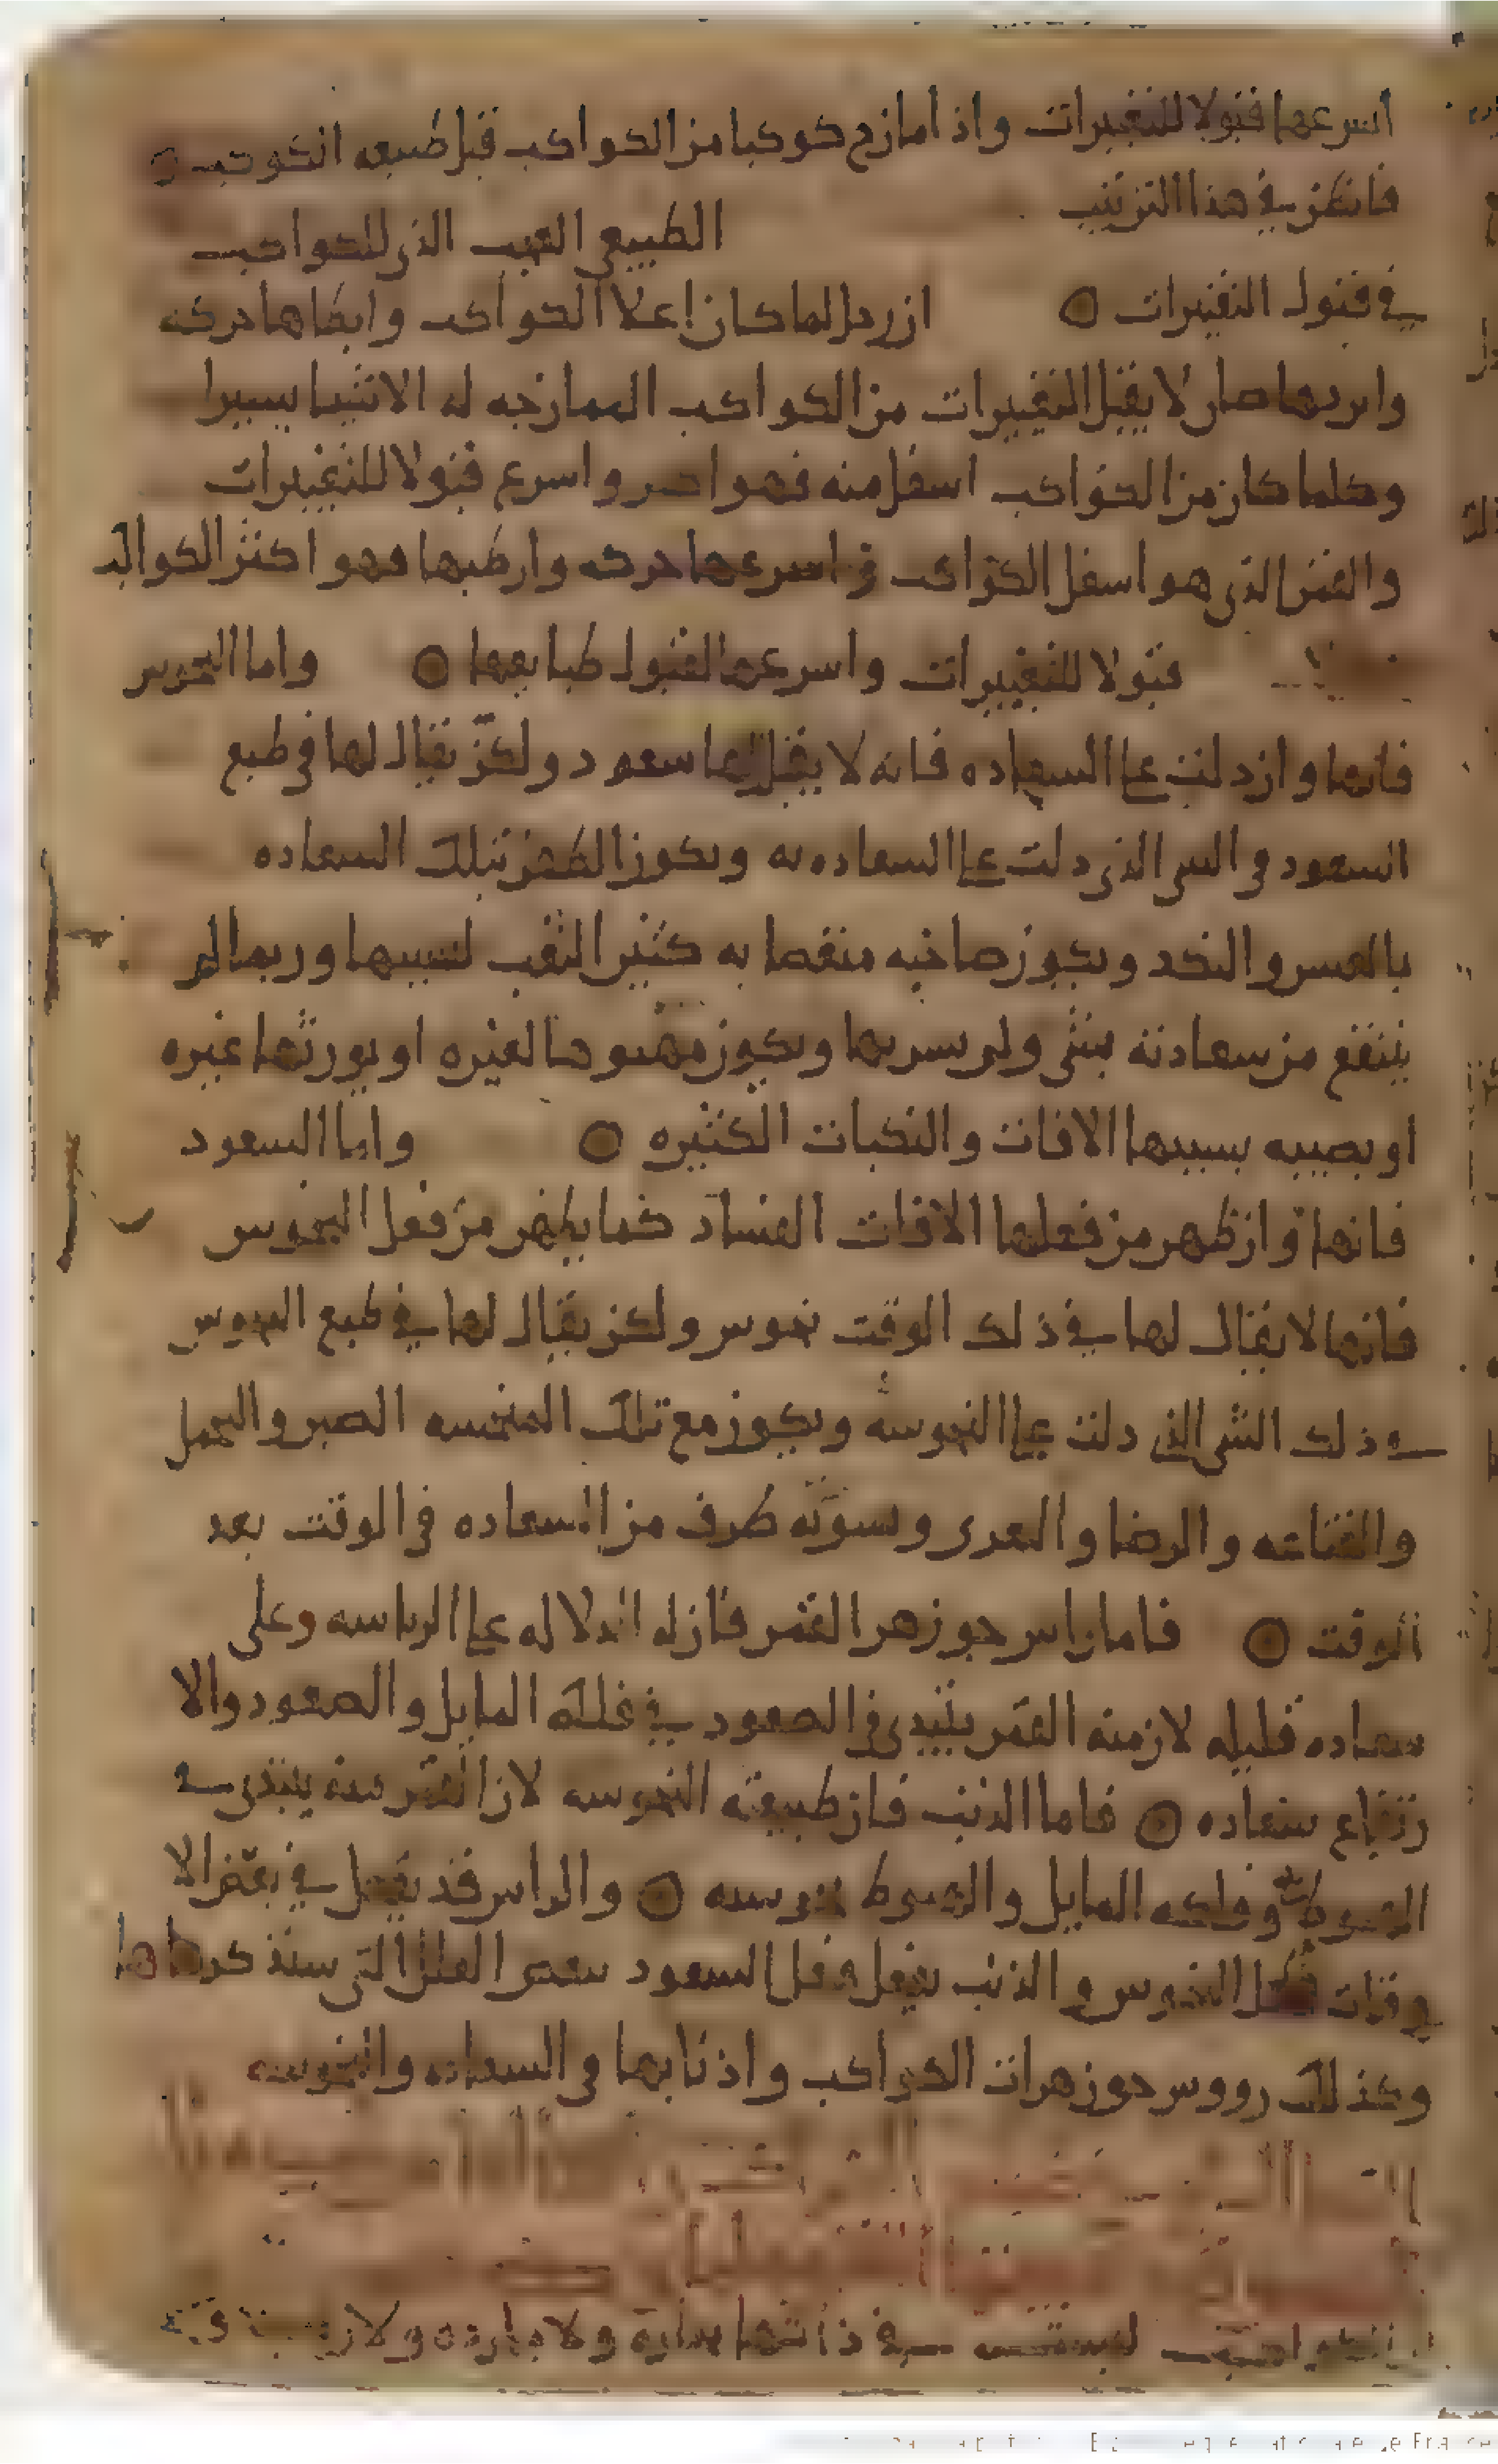 اسرعها قبولا للتغييرات واذا مازج كوكبا من الكواكب قبل طبيعه الكوكب
فانظر في هذا الترتيب الطبيعي العجيب الذي للكواكب
في قبول التغييرات ان زحل لما كان اعلا الكواكب وابطاها حركه
وابردها صار لا يقبل التغييرات من الكواكب الممازجه له الا شيا يسيرا
وكلما كان من الكواكب اسفل منه فهو احر واسرع قبولا للتغييرات
والقمر الذي هو اسفل الكواكب واسرعها حركه وارطبها فهو اكثر الكواكب
قبولا للتغييرات واسرعها لقبول طبايعها واما النحوس
فانها وان دلت على السعاده فانه لا يقال لها سعود ولكن يقال لها في طبع
السعود في الشي الذي دلت على السعاده به ويكون الظفر بتلك السعاده
بالعسر والنكد ويكون صاحبه منغصا به كثير التعب لسببها وربما لم
ينتفع من سعادته بشي ولم يسر بها ويكون مهنوها لغيره او يورثها غيره
او يصيبه بسببها الافات والنكبات الكثيره واما السعود
فانها وان ظهر من فعلها الافات الفساد كما يظهر من فعل النحوس
فانها لا يقال لها في ذلك الوقت نحوس ولكن يقال لها في طبع النحوس
في ذلك الشي الذي دلت على النحوسه ويكون مع تلك المنحسه الصبر والتحمل
والقناعه والرضا والعزى وسوته طرف من السعاده في الوقت بعد
الوقت فاما راس جوزهر القمر فان له الدلاله على الرياسه وعلى
سعاده قليله لان منه القمر يبتدي في الصعود في فلكه المايل والصعود والا
رتفاع سعاده فاما الذنب فان طبيعته النحوسه لان القمر منه يبتدي في
الهبوط في فلكه المايل والهبوط نحوسه والراس قد يفعل في بعض الا
وقات فعل النحوس والذنب يفعل فعل السعود لبعض العلل التي سنذكرها
وكذلك رووس جوزهرات الكواكب واذنابها في السعاده والنحوسه
الكواكب ليست في ذاتها بحاره ولا بارده ولا